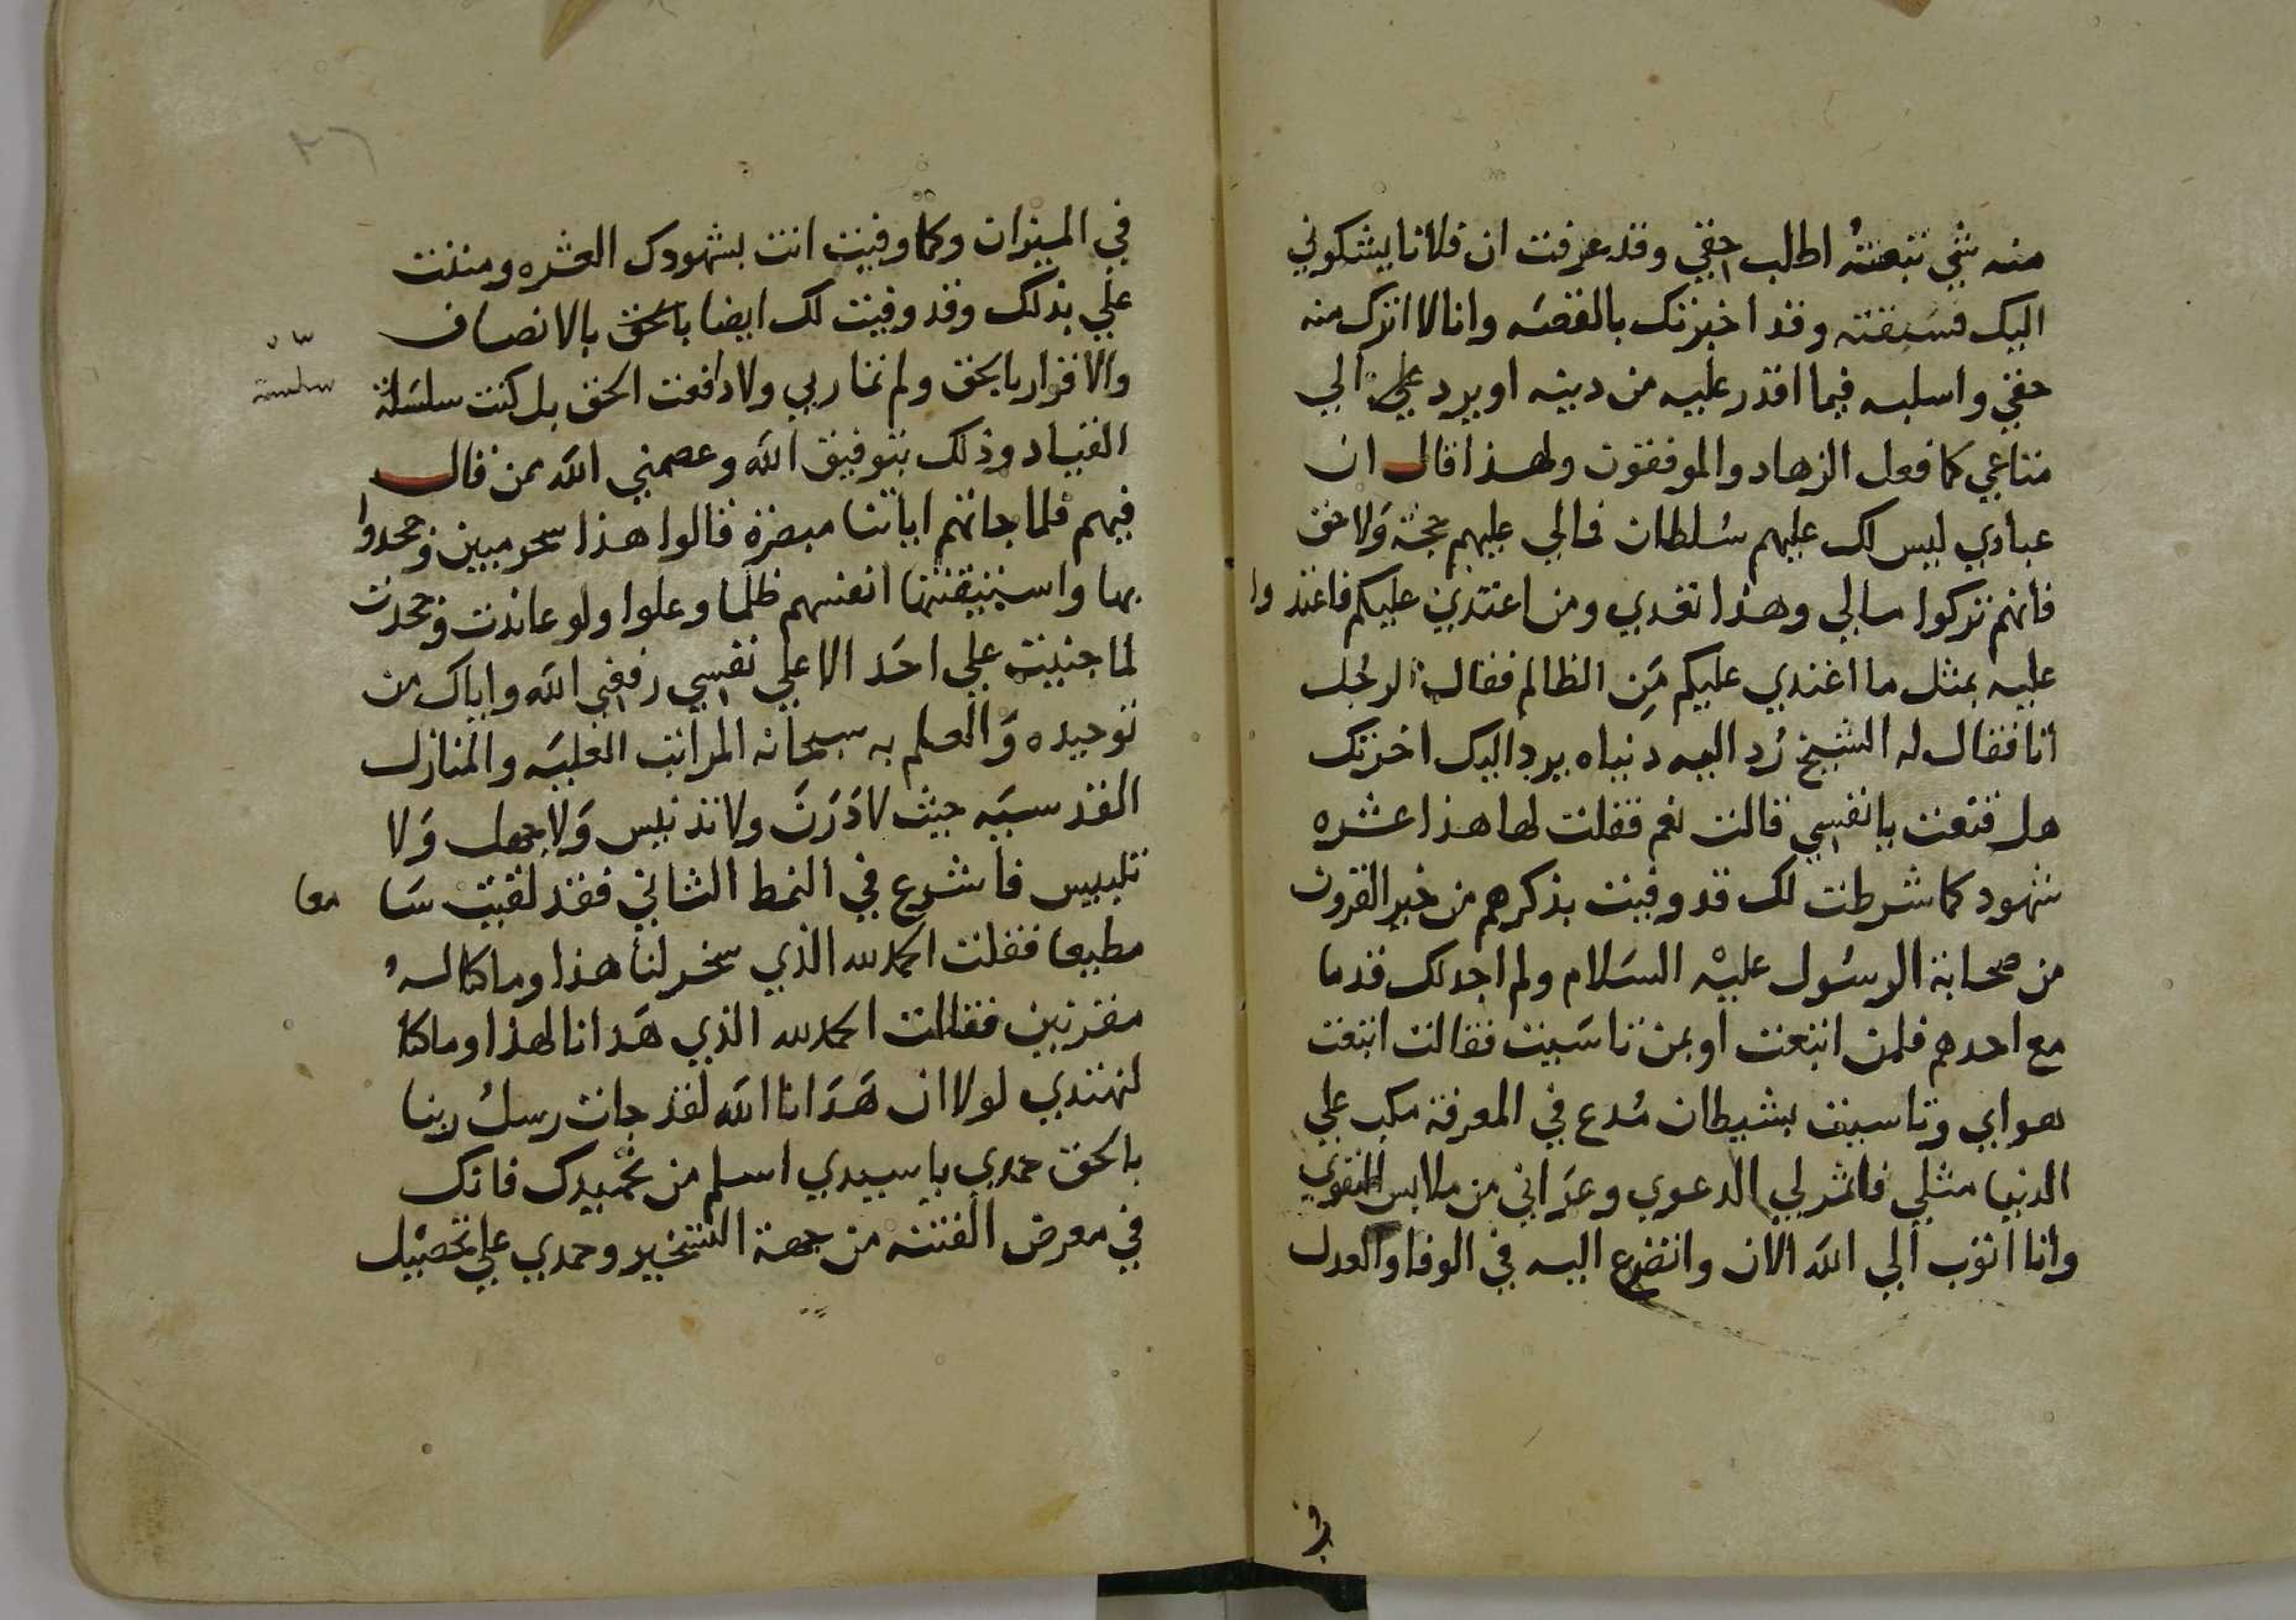 منه شي تبعته اطلب حقي وقد عرفت ان فلانا يشكوني
اليك فسبقته وقد اخبرتك بالقصه وانا لا اترك منه
حقي واسلبه فيما اقدر عليه من دينه او يرد علي الي
متاعي كما فعل الزهاد والموفقون ولهذا قال ان
عبادي ليس لك عليهم سلطان فمالي عليهم حجة ولا حق
فانهم تركوا مالي وهذا تعدي ومن اعتدي عليكم فاعتدوا
عليه بمثل ما اعتدي عليكم من الظالم فقال الرجل
انا فقال له الشيخ رد اليه دنياه يرد اليك اخرتك
هل قنعت يا نفسي قالت نعم فقلت لها هذا عشره
شهود كما شرطت لك قد وفيت بذكرهم من خير القرون
من صحابة الرسول عليه السلام ولم اجد لك قدما
مع احدهم فلمن اتبعت او بمن تاسيت فقالت اتبعت
هواي وتاسيت بشيطان مدع في المعرفة مكب علي
الدنيا مثلي فاثمر لي الدعوي وعراني من ملابس التقوي
وانا اتوب الي الله الان واتضرع اليه في الوفا والعدل
في
في الميزان وكما وفيت انت بشهودك العشره ومننت
علي بذلك وقد وفيت لك ايضا بالحق بالانصاف
والاقرار بالحق ولم نمار بي ولا دافعت الحق بل كنت سلسلة
سلسة
القياد وذلك بتوفيق الله وعصمني الله ممن قال
فيهم فلما جاتهم اياتنا مبصرة قالوا هذا سحر مبين وجحدوا
بها واستيقنتها انفسهم ظلما وعلوا ولو عاندت وجحدت
لما جنيت علي احد الا علي نفسي رفعني الله واياك من
توحيده والعلم به سبحانه المراتب العليه والمنازل
القدسيه حيث لا درن ولا تدنيس ولا جهل ولا
تلبيس فاشرع في النمط الثاني فقد لقيت سا
معا
مطيعا فقلت الحمد لله الذي سخر لنا هذا وما كنا له
مقرنين فقالت الحمد لله الذي هدانا لهذا وما كنا
لنهتدي لولا ان هدانا الله لقد جات رسل ربنا
بالحق حمدي يا سيدي اسلم من تحميدك فانك
في معرض الفتنه من جهة التسخير وحمدي علي تحصيل